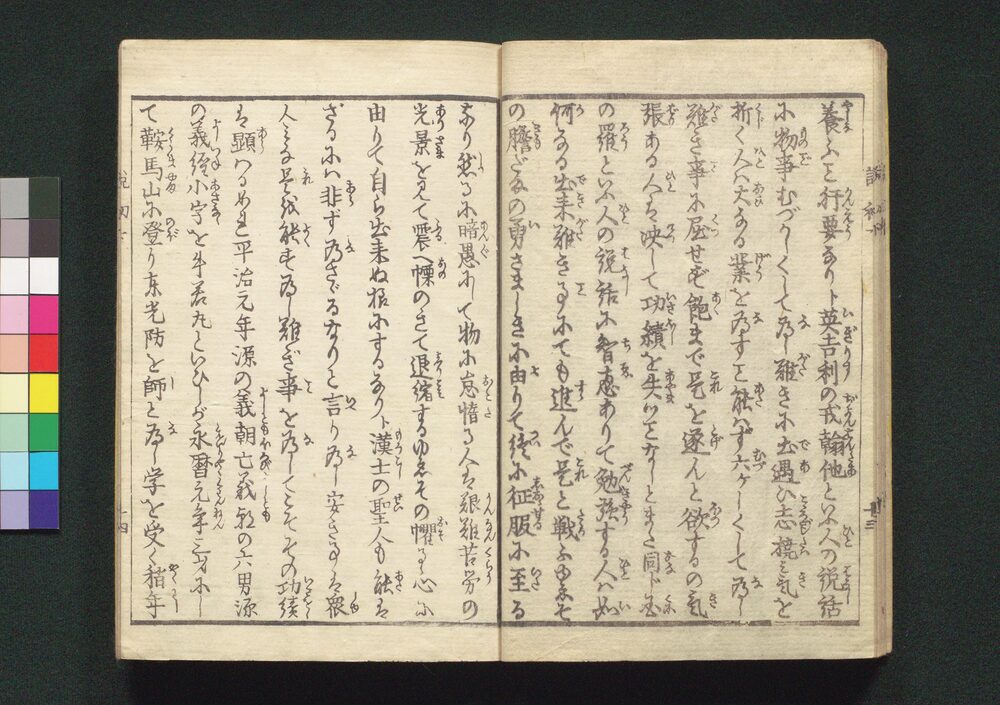 養ふを肝要なりト英吉利の戎翰他といふ人の説話
小物事むづかしくて為し難きに出遇ひ志撓み気を
折く人ハ大なる業を為すこと能はず六ケしくして為し
難き事に屈せず飽まで是を遂んと欲するの気
張ある人は决して功績を失ふことなしとまた同じ国
の羅といふ人の説話に智恵ありて勉強する人ハ如
何なる出来難きことにても進んで是と戦ふゆゑそ
の膽だましの勇さましきに由りて終に征服に至る
なり然るに暗愚にして物に怠惰る人は艱難苦労の
光景を見て震へ慄のきて退縮するゆゑその懼るゝ心に
由りて自ら出来ぬ様にするなりト漢土の聖人も能は
ざるにハ非ず為さざるなりと言り為し安きことは衆
人みな是を能す為し難き事を為してこそその功績
は顕ハるめれ平治元年源の義朝亡義朝の六男源
の義経小字を牛若丸といひしが永暦元年二才にし
て鞍馬山に登り東光防を師と為し学を受く稽年